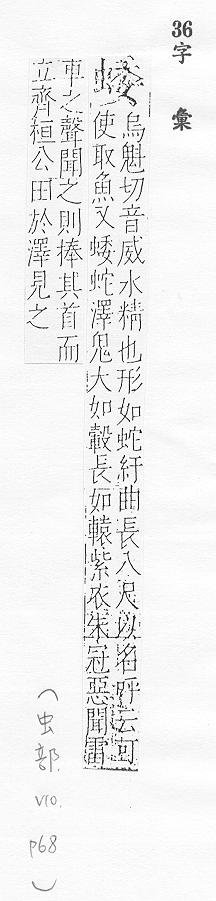 36
字彙
蜲
烏魁切音威水精也形如蛇紆曲長八尺以名呼云可
使取魚又蜲蛇澤鬼大如轂長如轅紫衣朱冠惡聞雷
車之聲聞之則捧其首而
立齊桓公田於澤見之
(虫部. V10. P68)